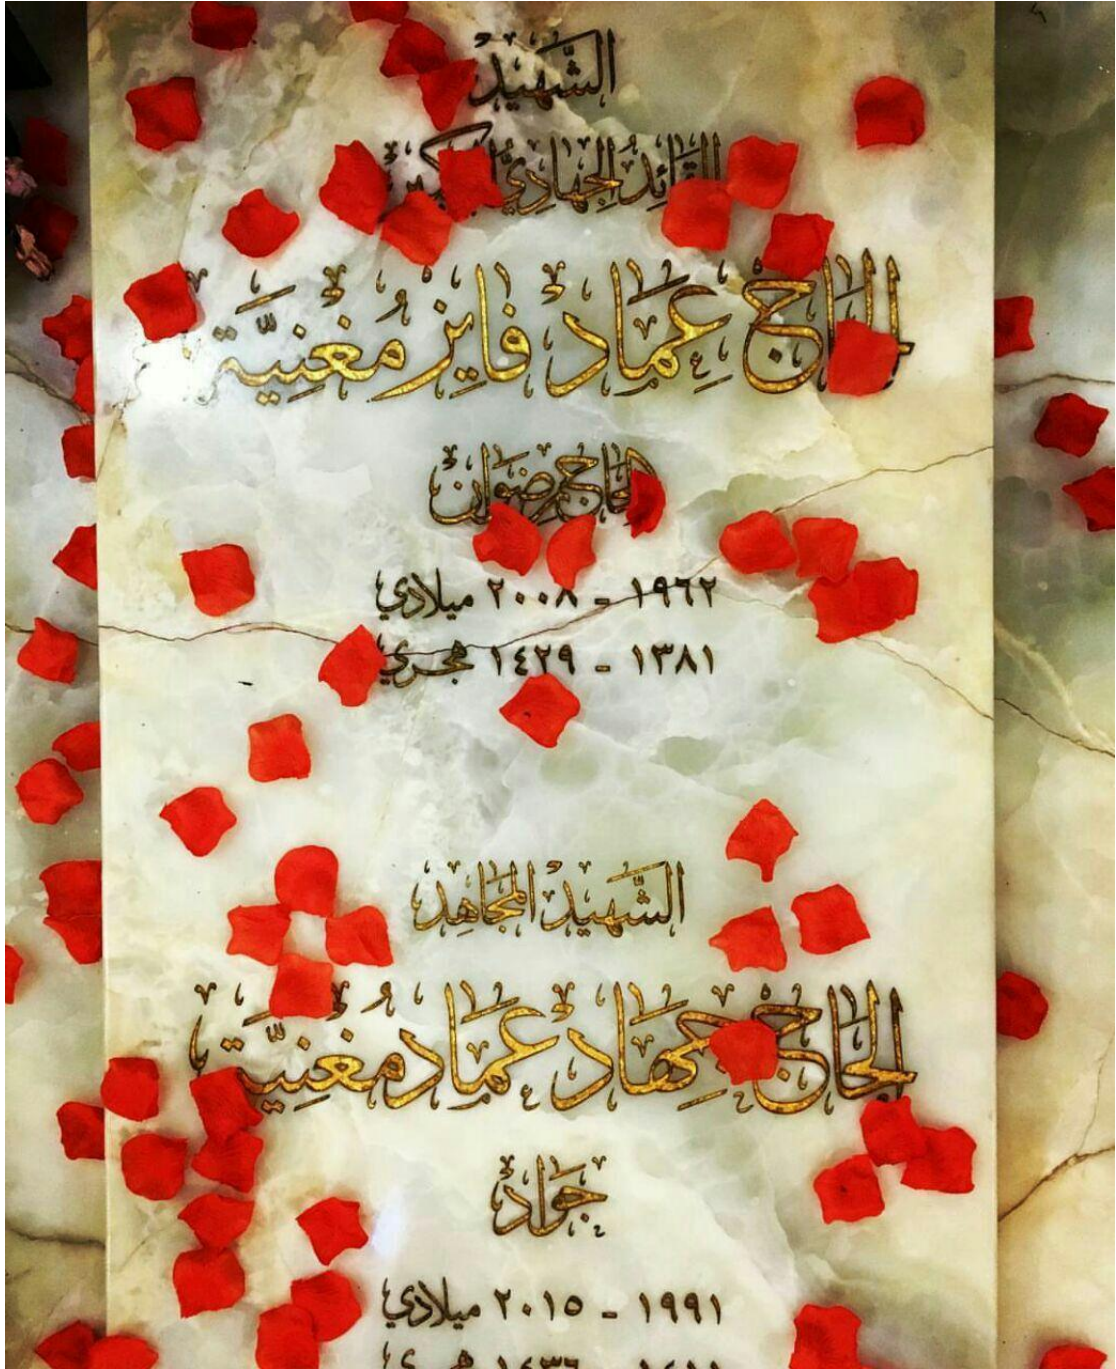 الشَّهِيدُ
القَائِدُ الجِهَادِيُّ الكَبِيرُ
الحَاج عِمَاد فَايِز مُغنِيَّة
الحَاج رِضوَان
١٩٦٢ - ٢٠٠٨ ميلادي
١٣٨١ - ١٤٢٩ هجري
الشَّهِيدُ المُجَاهِدُ
الحَاج جِهَاد عِمَاد مُغنِيَّة
جَوَاد
١٩٩١ - ٢٠١٥ ميلادي